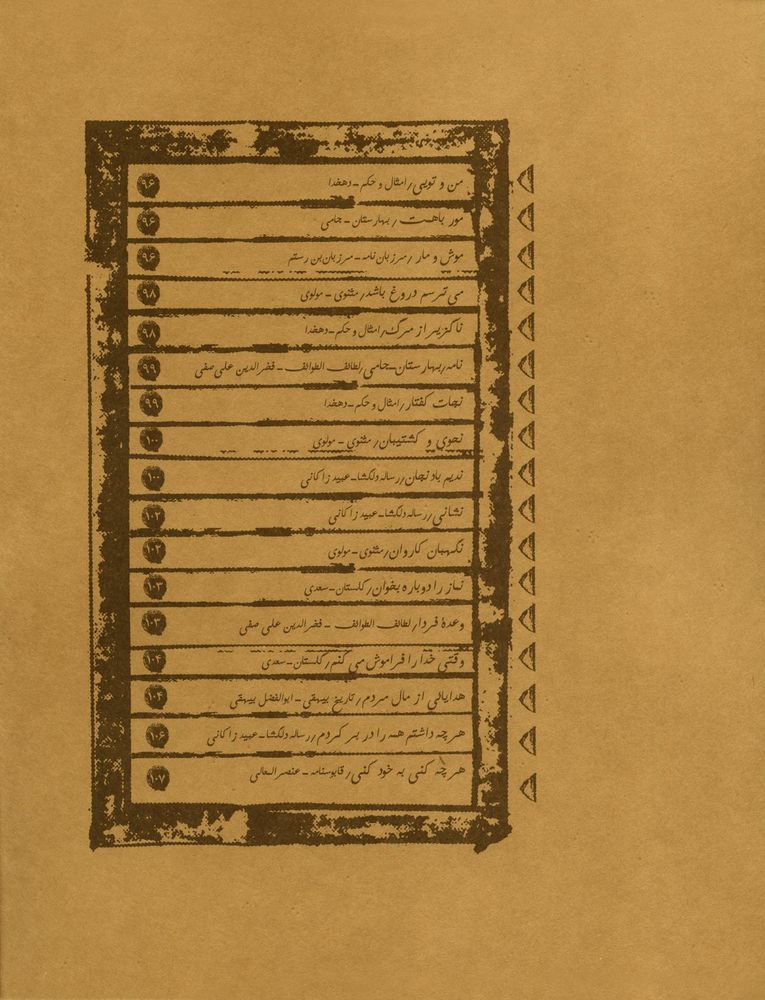 من و تویی/امثال و حکم-دهخدا ۹۶
مور باهمت/بهارستان-جامی ۹۶
موش و مار/مرزبان‌نامه-مرزبان‌بن رستم ۹۶
می ترسم دروغ باشد/مثنوی-مولوی ۹۸
ناگزیر از مرگ/امثال و حکم-دهخدا ۹۸
نامه/بهارستان-جامی/لطائف الطوائف-فخرالدین علی صفی ۹۹
نجات گفتار/امثال و حکم-دهخدا ۹۹
نحوی و کشتیبان/مثنوی-مولوی ۱۰۰
ندیم بادنجان/رساله دلگشا-عبید زاکانی ۱۰۰
نشانی/رساله دلگشا-عبید زاکانی ۱۰۲
نگهبان کاروان/مثنوی-مولوی ۱۰۲
نماز را دوباره بخوان/گلستان-سعدی ۱۰۳
وعدهٔ فردا/لطائف الطوائف-فخرالدین علی صفی ۱۰۳
وقتی خدا را فراموش می کنم/گلستان-سعدی ۱۰۴
هدایائی از مال مردم/تاریخ بیهقی-ابوالفضل بیهقی ۱۰۴
هر چه داشتم همه را در بر کردم/رساله دلگشا-عبید زاکانی ۱۰۶
هر چه کنی به خود کنی/قابوسنامه-عنصرالمعالی ۱۰۷